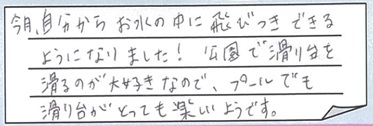 今月、自分から お水の中に 飛びつき できる
ようになりました! 公園で滑り台を
滑るのが大好きなので、プールでも
滑り台がとっても楽しいようです。